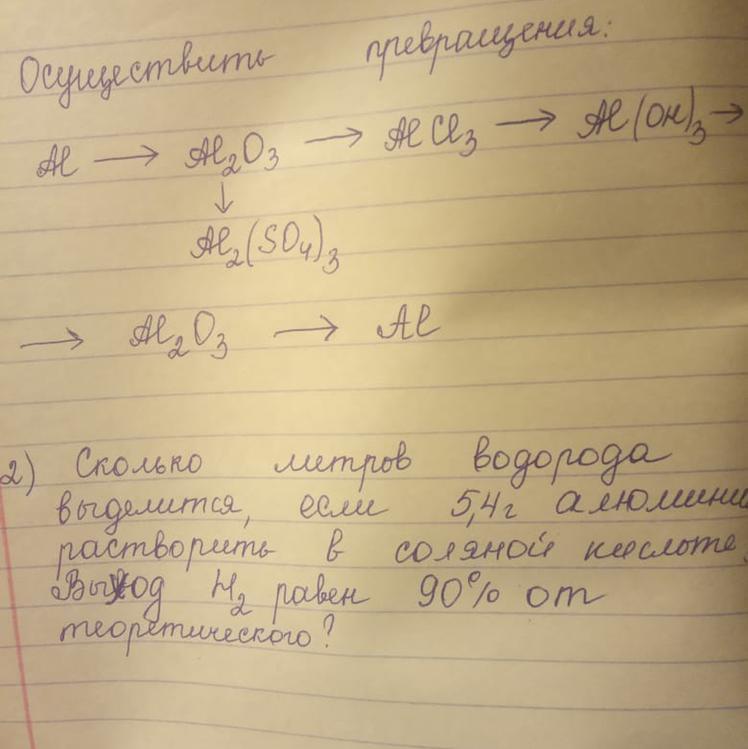 Осуществить превращения:
Al → Al₂O₃ → AlCl₃ → Al(OH)₃ →
↓
Al₂(SO₄)₃
→ Al₂O₃ → Al
2) Сколько литров водорода
выделится, если 5,4г алюмини
растворить в соляной кислоте.
Выход H₂ равен 90% от
теоретического?